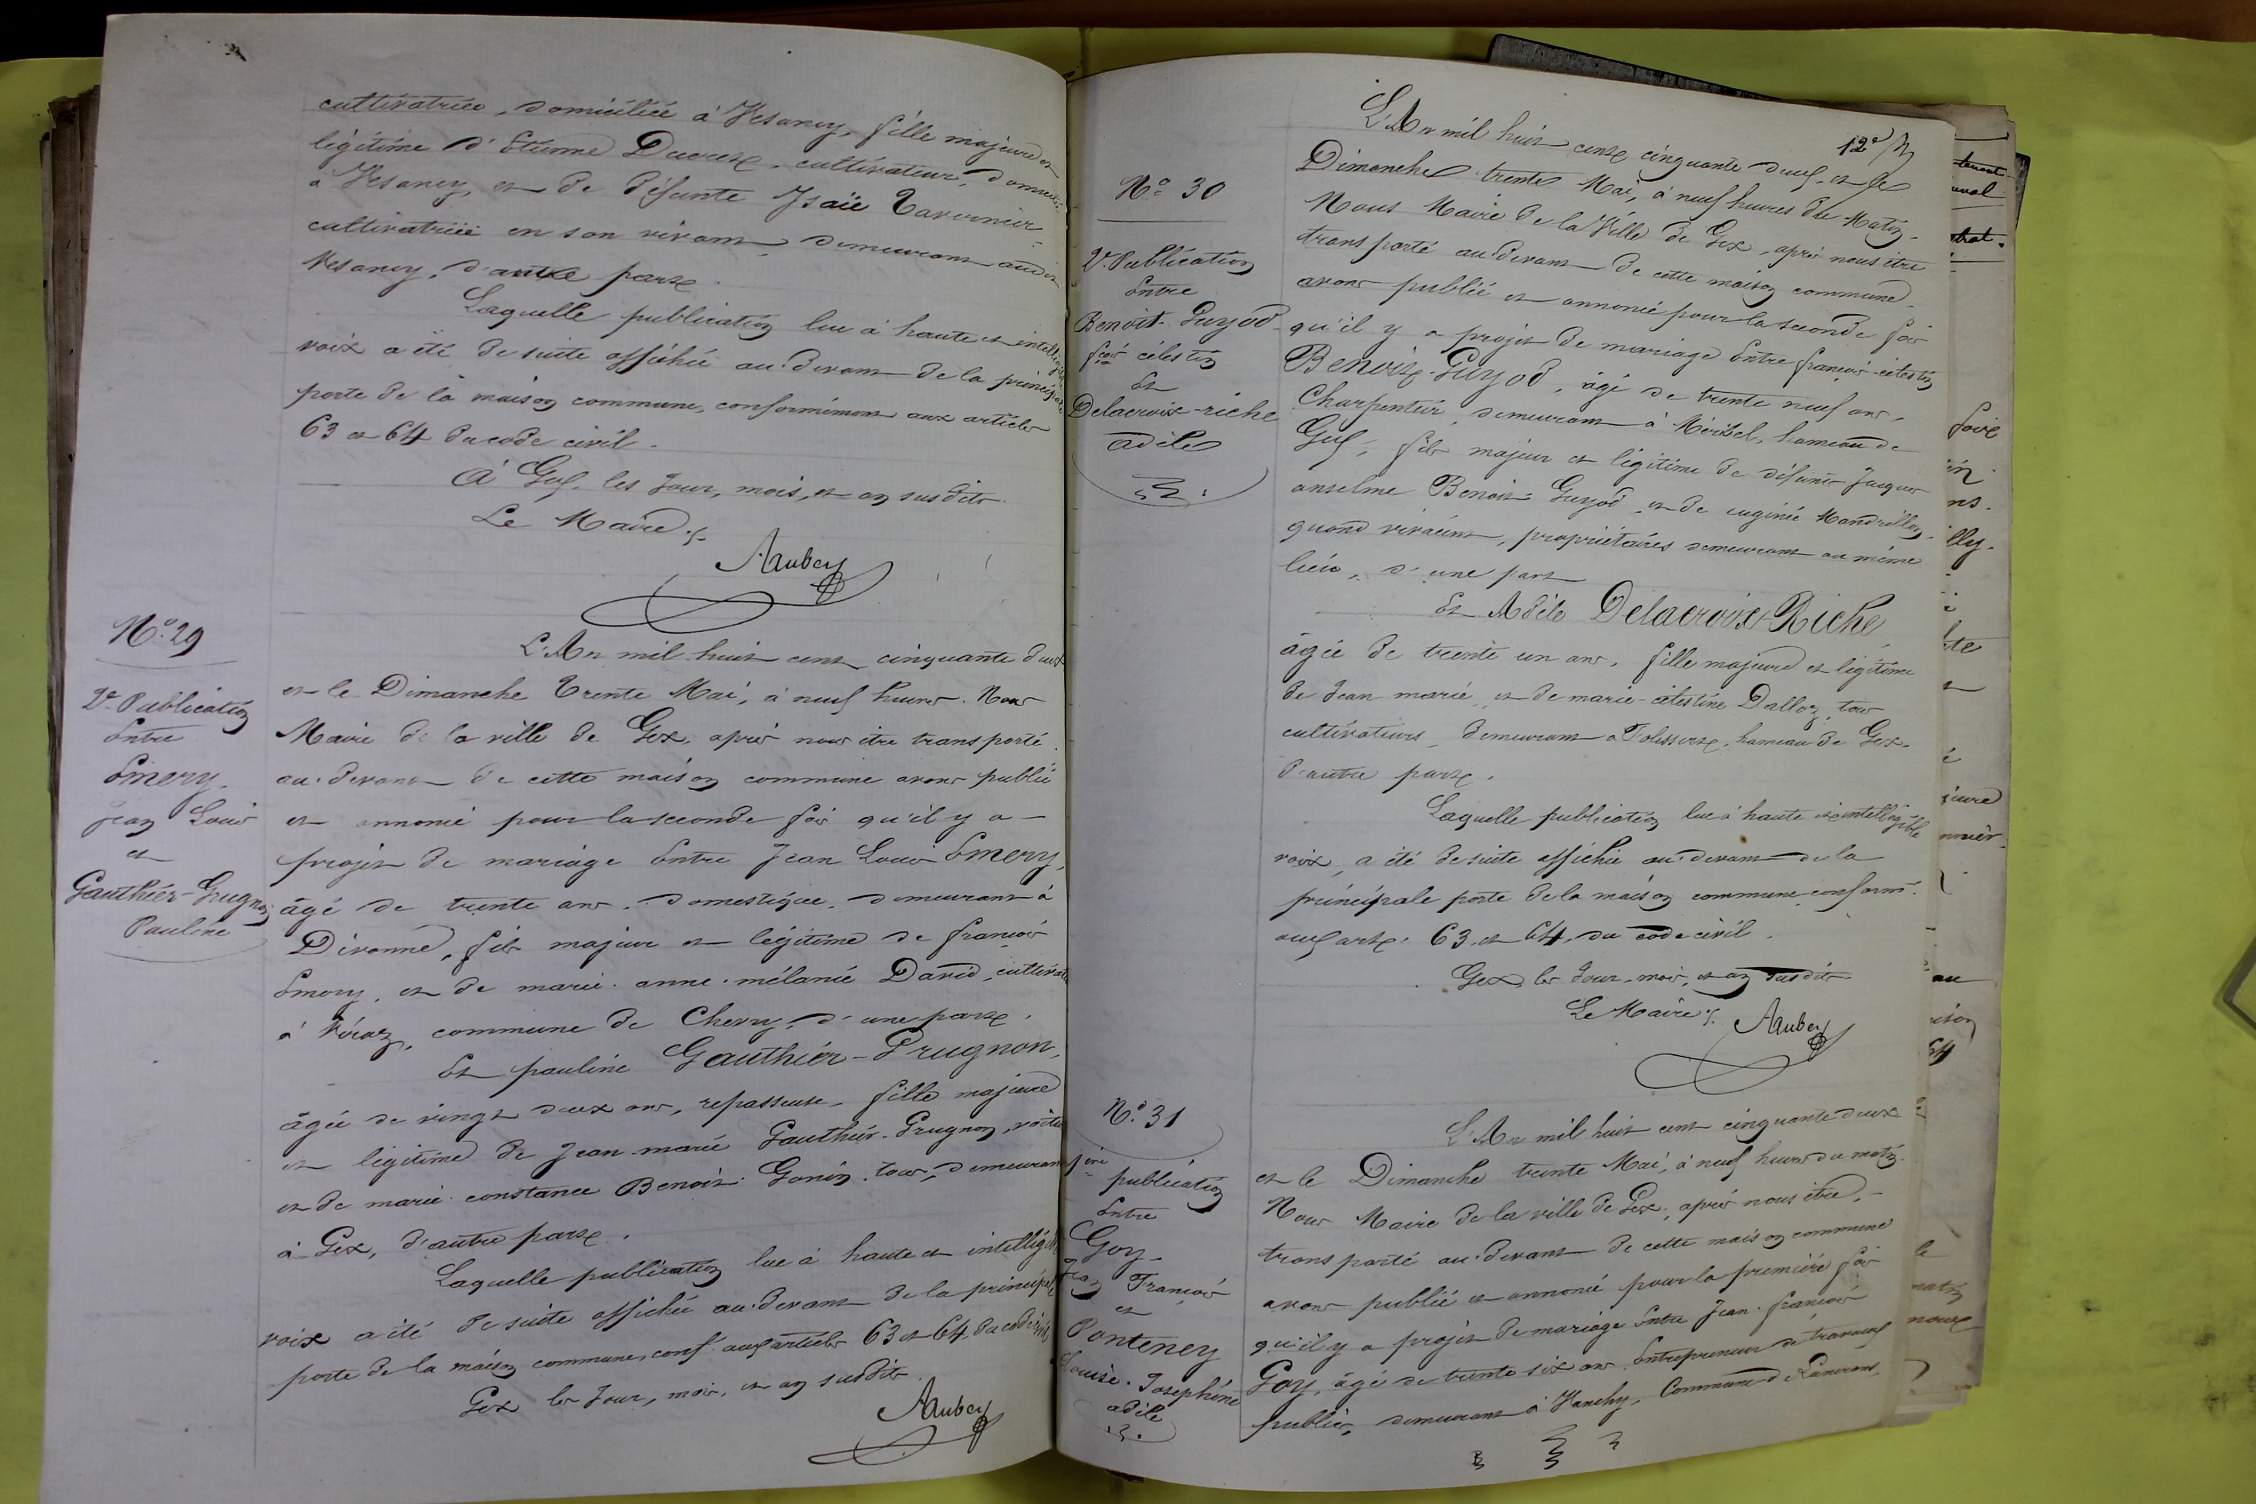 cultivatrice, domiciliée à Vesancy, fille majeure et
légitime d'Etienne Ducret, cultivateur, domicilié
à Vesancy, et de défunte Isaïe Tavernier
cultivatrice en son vivant, demeurant audit
Vesancy, d'autre part.
Laquelle publication lue à haute et intelligible
voix a été de suite affichée au devant de la principale
porte de la maison commune, conformément aux articles
63 et 64 du code civil.
A Gex les Jour, mois, et an susdits.
Le Maire
Aubery
N° 29
2e Publication
Entre
Emery
Jean Louis
et
Gauthier-Grugnon
Pauline
L'An mil huit cent cinquante deux
et le Dimanche Trente Mai, à neuf heures. Nous
Maire de la ville de Gex, après nous être transporté
au devant de cette maison commune avons publié
et annoncé pour la seconde fois qu'il y a
projet de mariage Entre Jean Louis Emery,
âgé de trente ans, domestique, demeurant à
Divonne, fils majeur et légitime de françois
Emery, et de marie anne mélanie David, cultivateurs
à Véraz, commune de Chevry, d'une part.
Et pauline Gauthier-Prugnon,
âgée de vingt deux ans, repasseuse, fille majeure
et légitime de Jean marie Gauthier-Prugnon,
et de marie constance Benoit-Gonin, tous demeurant
à Gex, d'autre part.
Laquelle publication lue à haute et intelligible
voix a été de suite affichée au devant de la principale
porte de la maison commune, conf. aux articles 63 et 64 du code civil
Gex les Jour, mois, et an susdits
Aubery
12e
N° 30
2e Publication
Entre
Benoit-Guyod
fçois célestin
Et
Delacroix-riche
adèle
L'An mil huit cent cinquante deux et le
Dimanche trente Mai, à neuf heures du Matin
Nous Maire de la Ville de Gex, après nous être
transporté au devant de cette maison commune
avons publié et annoncé pour la seconde fois
qu'il y a projet de mariage Entre françois célestin
Benoit-Guyod, âgé de trente neuf ans,
Charpentier, demeurant à Hérisel, hameau de
Gex, fils majeur et légitime de défunts Jacques
anselme Benoit Guyod, et de eugénie Mandrillon,
quand vivaient, propriétaires demeurant au même
lieu, d'une part
Et Adèle Delacroix-Riche
âgée de trente un ans, fille majeure et légitime
de Jean marie, et de marie-célestine Dalloz, tous
cultivateurs, demeurant à Tolisserx, hameau de Gex,
d'autre part.
Laquelle publication lue à haute et intelligible
voix, a été de suite affichée au devant de la
principale porte de la maison commune conformt
aux arts. 63 et 64 du code civil.
Gex les Jour, mois, et an susdits
Le Maire
Aubery
N° 31
1ère publication
Entre
Goy
Jean François
et
Ponteney
Louise Joséphine
adèle
L'An mil huit cent cinquante deux
et le Dimanche trente Mai, à neuf heures du matin.
Nous Maire de la ville de Gex, après nous être
transporté au devant de cette maison commune
avons publié et annoncé pour la première fois
qu'il y a projet de mariage Entre Jean françois
Goy, âgé de trente six ans, Entrepreneur de travaux
publics, demeurant à Vanchy, Commune de Lancrans,